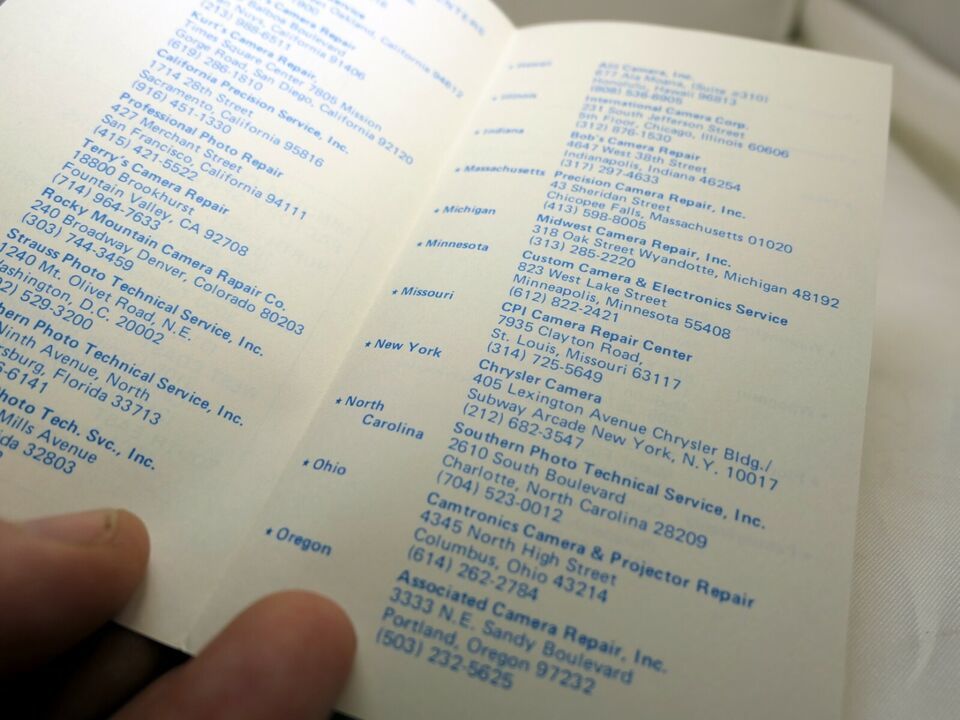 CENTERS
Oakland, California 94612
Camera Repair
Balboa Boulevard
Van Nuys, California 91406
(213) 988-6811
Kurt's Camera Repair,
Times Square Center 7805 Mission
Gorge Road San Diego, California 92120
(619) 286-1810
California Precision Service, Inc.
1714 28th Street
Sacramento, California 95816
(916) 451-1330
Professional Photo Repair
427 Merchant Street
San Francisco, California 94111
(415) 421-5522
Terry's Camera Repair
18800 Brookhurst
Fountain Valley, CA 92708
(714) 964-7633
Rocky Mountain Camera Rapair Co.
240 Broadway Denver, Colorado 80203
(303) 744-3459
Strauss Photo Technical Service, Inc.
1240 Mt. Olivet Road, N.E.
Washington, D.C. 20002
529-3200
Photo Technical Service, Inc.
Ninth Avenue, North
Florida 33713
-6141
Photo Tech. Svc., Inc.
Mills Avenue
32803
* Hawaii
Camera, Inc.
677 Ala Moana, (Suite #310)
Honolulu, Hawaii 96813
(808) 536-6905
* Illinois
International Camera Corp.
311 South Jefferson Street
5th Floor, Chicago, Illinois 60606
(312) 876-1530
* Indiana
Bob's Camera Repair
4647 West 38th Street
Indianapolis, Indiana 46254
(317) 297-4633
* Massachusetts
Precision Camera Repair, Inc.
43 Sheridan Street
Chicopee Falls, Massachusetts 01020
(413) 598-8005
* Michigan
Midwest Camera Repair, Inc.
318 Oak Street Wyandotte, Michigan 48192
(313) 285-2220
* Minnesota
Custom Camera & Electronics Service
823 West Lake Street
Minneapolis, Minnesota 55408
(612) 822-2421
* Missouri
CPI Camera Repair Center
7935 Clayton Road,
St. Louis, Missouri 63117
(314) 725-5649
* New York
Chrysler Camera
405 Lexington Avenue Chrysler Bldg./
Subway Arcade New York, N.Y. 10017
(212) 682-3547
* North
Carolina
Southern Photo Technical Service, Inc.
2610 South Boulevard
Charlotte, North Carolina 28209
(704) 523-0012
* Ohio
Camtronics Camera & Projector Repair
4345 North High Street
Columbus, Ohio 43214
(614) 262-2784
* Oregon
Associated Camera Repair, Inc.
3333 N.E. Sandy Boulevard
Portland, Oregon 97232
(503) 232-5625